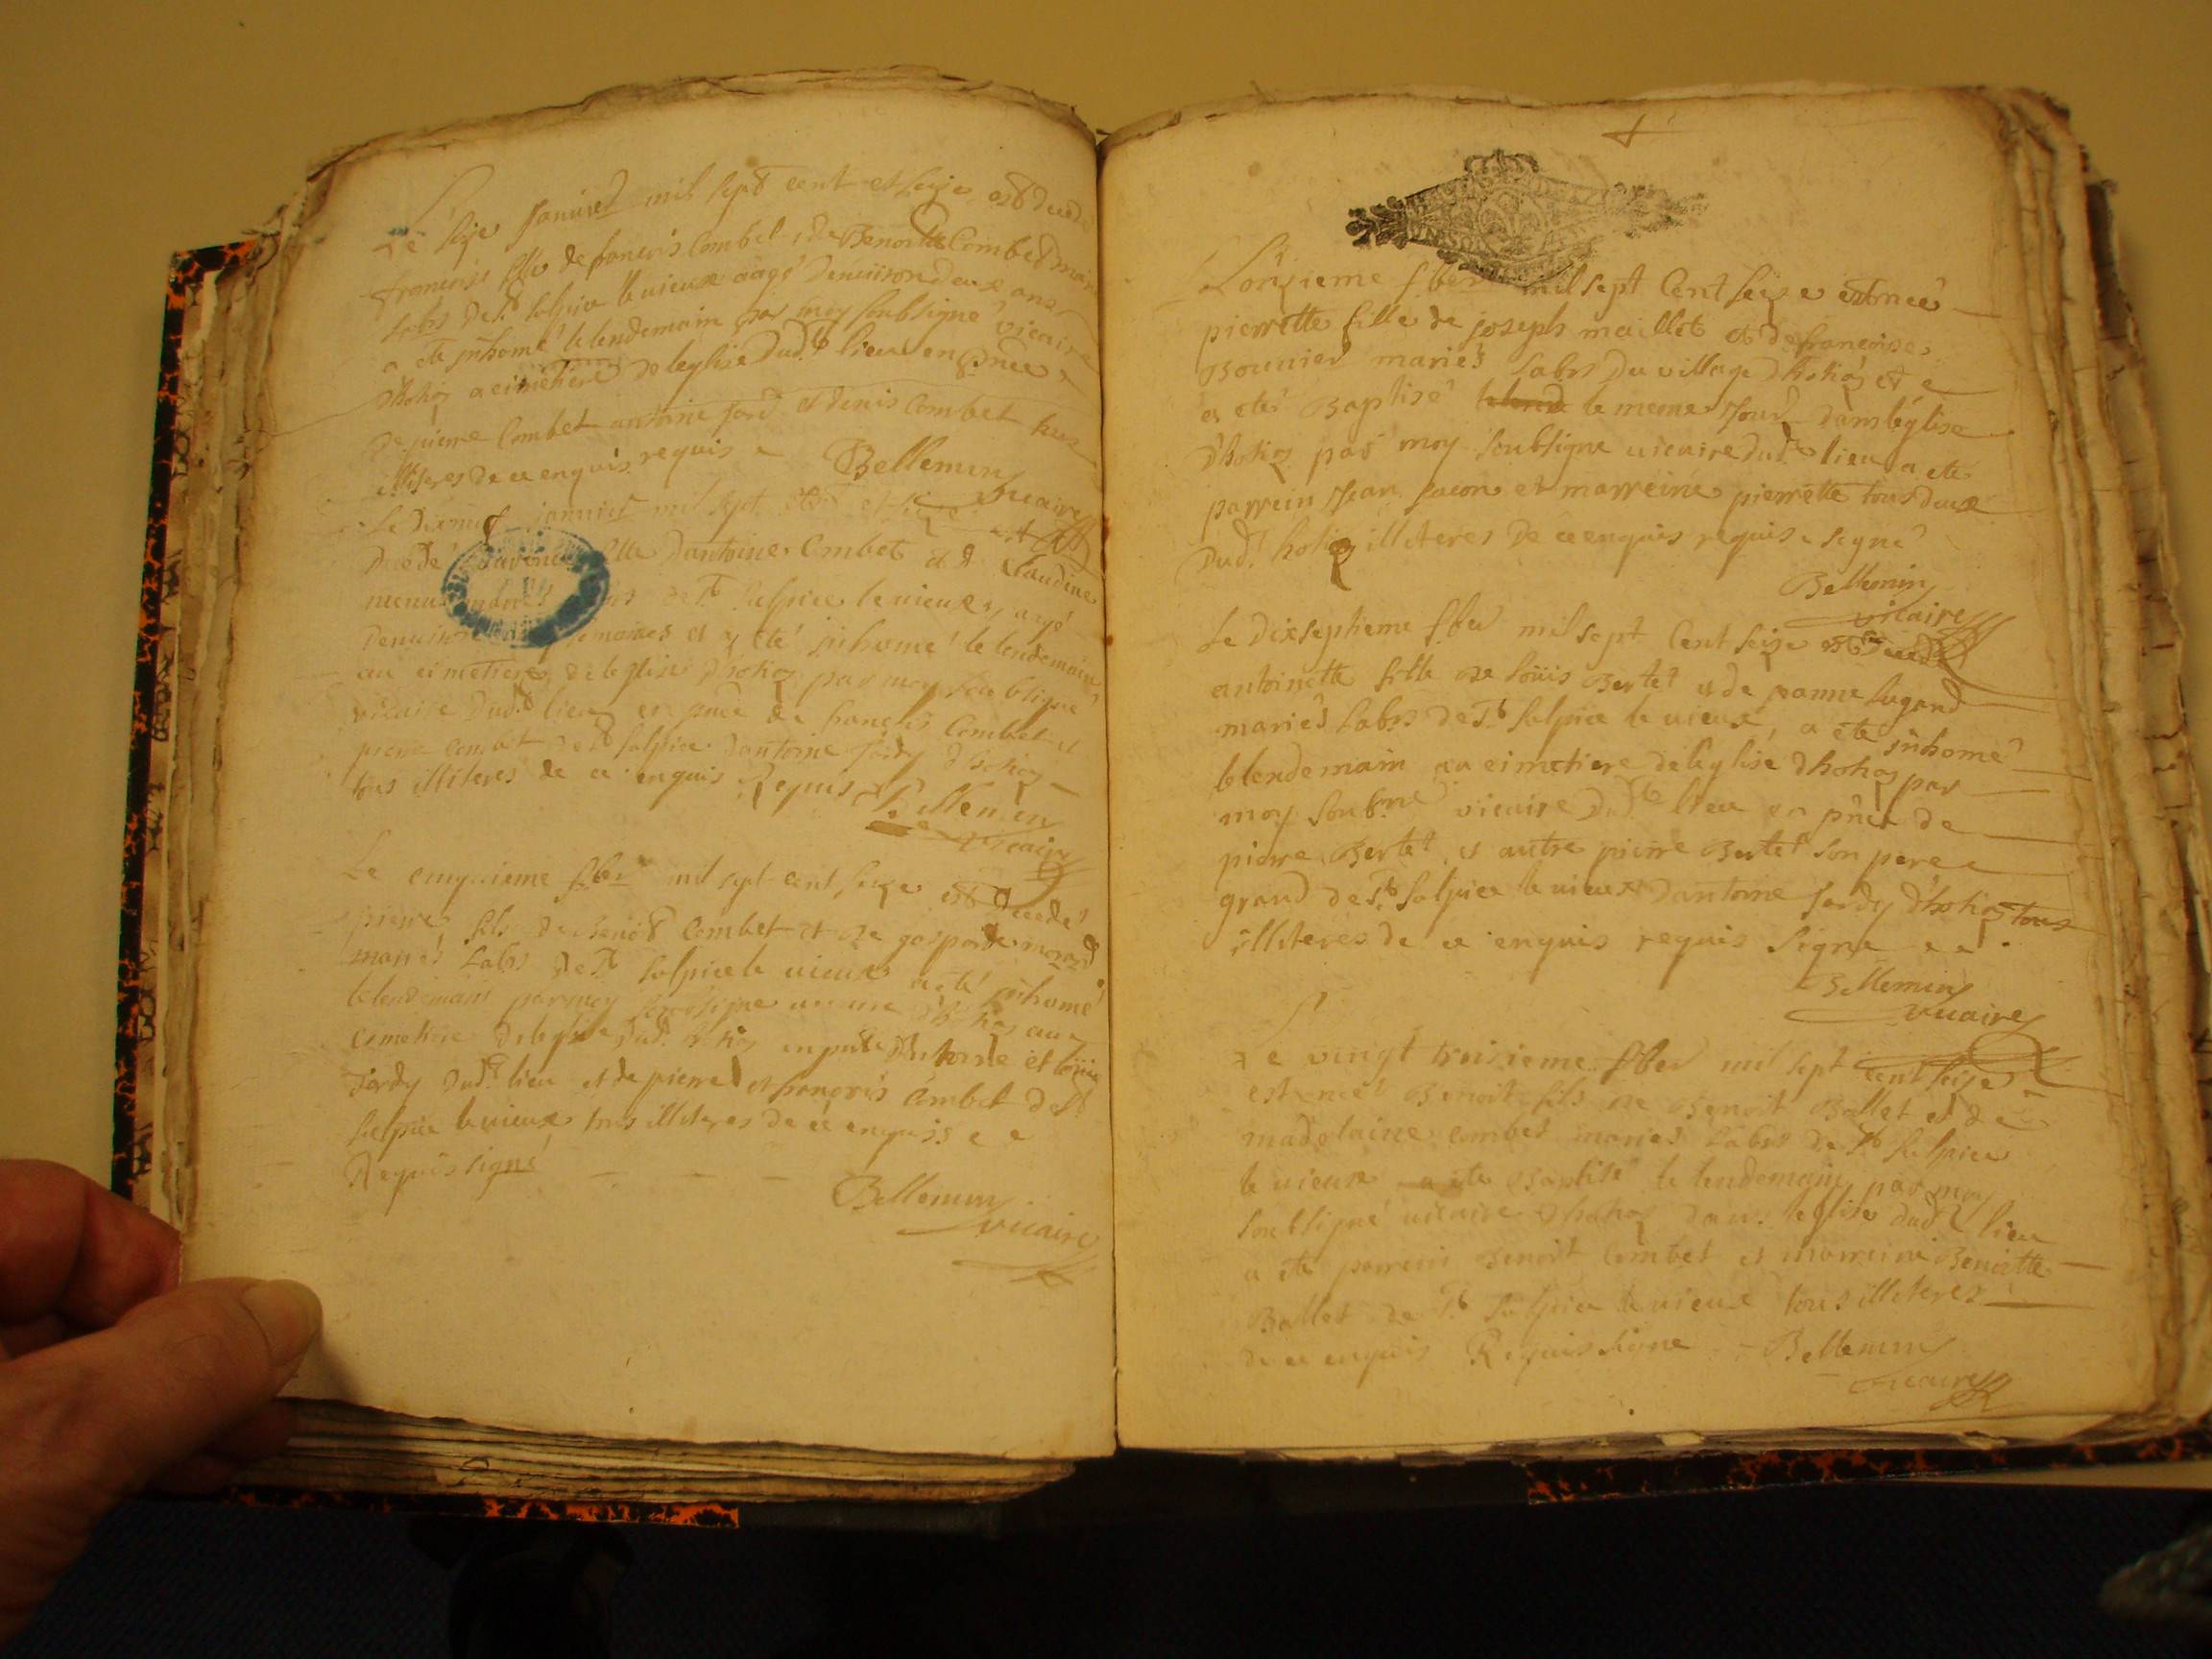 Le seize Janvier mil sept cent et seize est decedé
francois fils de francois Combet et de Benoitte Combet mariés
Labrs de St Sulpice le vieux aagé denuiron deux ans
a eté jnhomé le lendemain par moy soubsigné vicaire
d'hotio au cimetiere de leglise dudt lieu en pnce
de pierre Combet antoine Jord et denis Combet tous
illiteres de ce enquis requis
Bellemin
vicaire
Le dixneuf januier mil sept et seize est
decedé fille d'antoine Combet et Claudine
mariés de St Sulpice le vieux, agé
denuiron semaines et a eté jnhomé le lendemain
au cimetiere de leglise d'hotio par moy soubsigné
vicaire dudt lieu en pnce de francois Combet et
pierre Combet de St Sulpice d'antoine Jordy d'hotio
tous illiteres de ce enquis Requis
Bellemin
vicaire
Le cinquieme fber mil sept cent seize est decedé
pierre fils de benoit Combet et de gasparde morand
mariés Labrs de St Sulpice le vieux a eté jnhomé
le lendemain par moy soubsigne vicaire d'hotio au
cimetiere de leglise dudt hotio en pnce d'Antoine et
Jordy dudt lieu et de pierre et francois Combet de St
Sulpice le vieux tous illiteres de ce enquis
Requis signé
Bellemin
vicaire
L'onzieme fber mil sept Cent seize est neé
pierrette fille de joseph maillet et de francoise
Bounier mariés Labrs du village d'hotio et
a eté Baptisé le meme Jour dans l'église
d'hotio par moy soubsigne vicaire dudt lieu a eté
parrein Jean et marreine pierrette tous deux
dudt hotio illiteres de ce enquis requis signé
Bellemin
vicaire
Le dixseptieme fber mil sept Cent seize est decedé
antoinette fille de Loüis Bertet et de jeanne Lugand
mariés Labrs de St Sulpice le vieux, a eté jnhomé
le lendemain au cimetiere de l'eglise d'hotio par
moy soubsné vicaire dudt lieu en pnce de
pierre Bertet et autre pierre Bertet son pere
grand de St Sulpice le vieux d'antoine Jordy d'hotio tous
illiteres de ce enquis requis signe
Bellemin
vicaire
Le vingt troisieme fber mil sept cent seize
est neé Benoit fils de Benoit Ballet et de
madelaine Combet mariés Labrs de St Sulpice
le vieux a eté Baptisé le lendemain par moy
soubsigné vicaire d'hotio dans leglise dudt lieu
a eté parrein Benoit Combet et marreine Benoitte
Ballet de St Sulpice le vieux tous illiteres
de ce enquis Requis signe Bellemin
vicaire